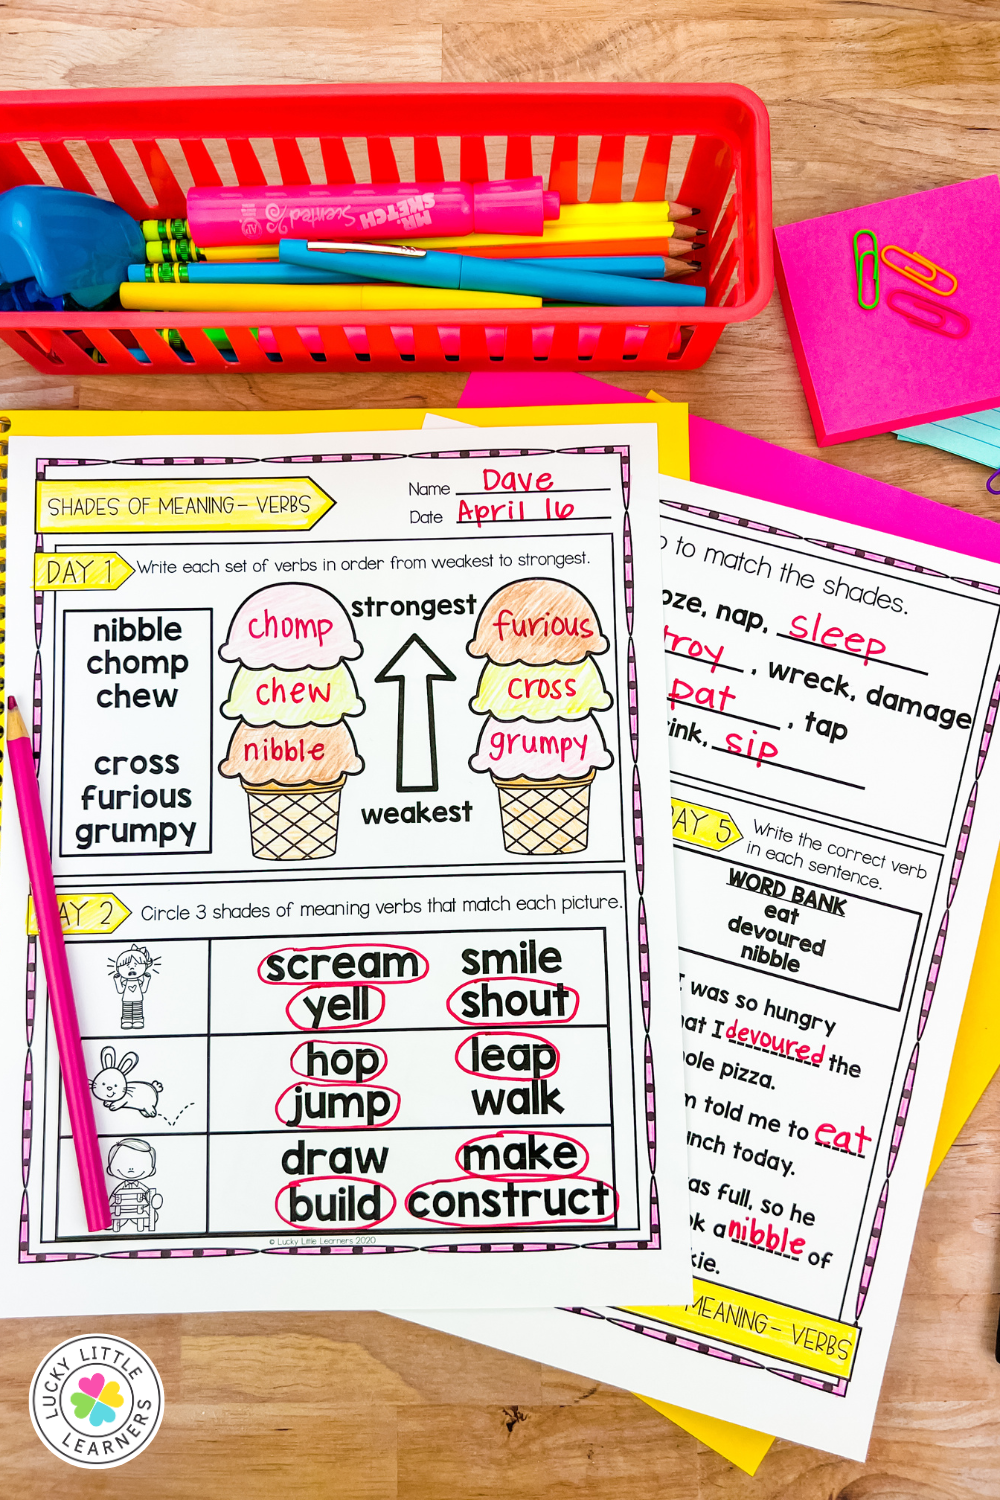 MR. SKETCH
Scented
SHADES OF MEANING- VERBS
Name Dave
Date April 16
DAY 1
Write each set of verbs in order from weakest to strongest.
nibble
chomp
chew
cross
furious
grumpy
chomp
chew
nibble
strongest
weakest
furious
cross
grumpy
AY 2
Circle 3 shades of meaning verbs that match each picture.
scream smile
yell shout
hop leap
jump walk
draw make
build construct
© Lucky Little Learners 2020
to match the shades.
oze, nap, sleep
troy, wreck, damage
pat, tap
rink, sip
AY 5
Write the correct verb
in each sentence.
WORD BANK
eat
devoured
nibble
I was so hungry
at I devoured the
ole pizza.
m told me to eat
unch today.
as full, so he
k a nibble of
kie.
MEANING- VERBS
LUCKY LITTLE
LEARNERS